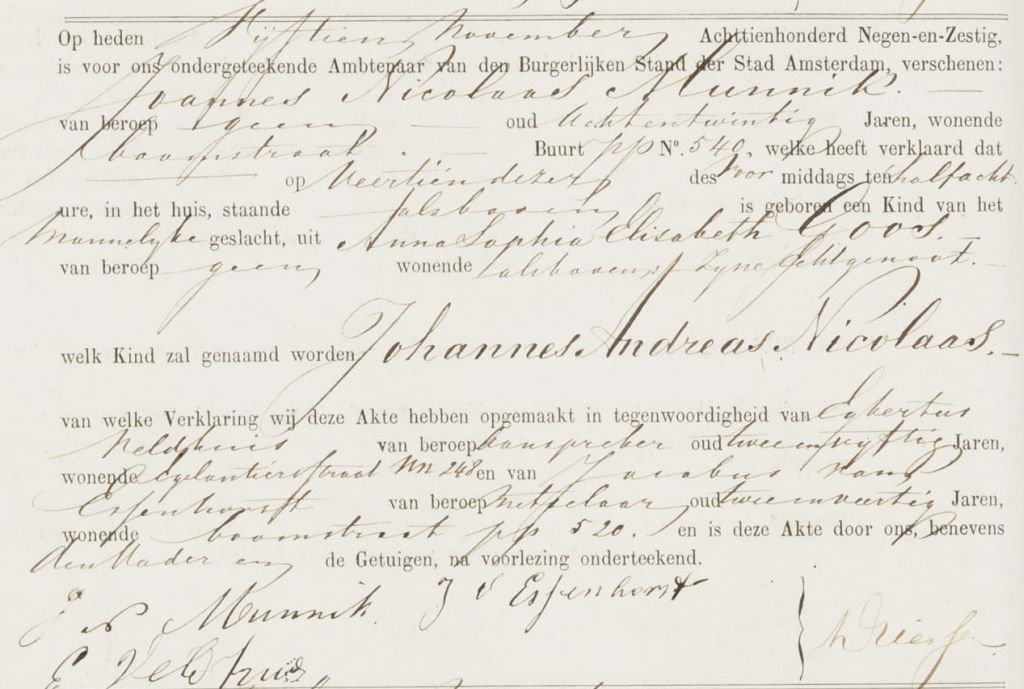 Op heden Vijftien November Achttienhonderd Negen-en-Zestig,
is voor ons ondergeteekende Ambtenaar van den Burgerlijken Stand der Stad Amsterdam, verschenen:
Joannes Nicolaas Munnik.
van beroep geen oud Achtentwintig Jaren, wonende
boomstraat. Buurt pp No. 540, welke heeft verklaard dat
op Veertien dezer des Voor middags ten half acht
ure, in het huis, staande alsboven is geboren een Kind van het
Mannelyke geslacht, uit Anna Sophia Elisabeth Goos.
van beroep geen wonende alsboven, Zyne Echtgenoot.
welk Kind zal genaamd worden Johannes Andreas Nicolaas.
van welke Verklaring wij deze Akte hebben opgemaakt in tegenwoordigheid van Egbertus
Veldhuis van beroep aanspreker oud tweeenvyftig Jaren,
wonende Egelantierstraat NN 248 en van Jacobus van
Essenhorst van beroep oud tweeenveertig Jaren,
wonende boomstraat pp 520. en is deze Akte door ons, benevens
den Vader en de Getuigen, na voorlezing onderteekend.
J N Munnik. J V Essenhorst
E Veldhuis